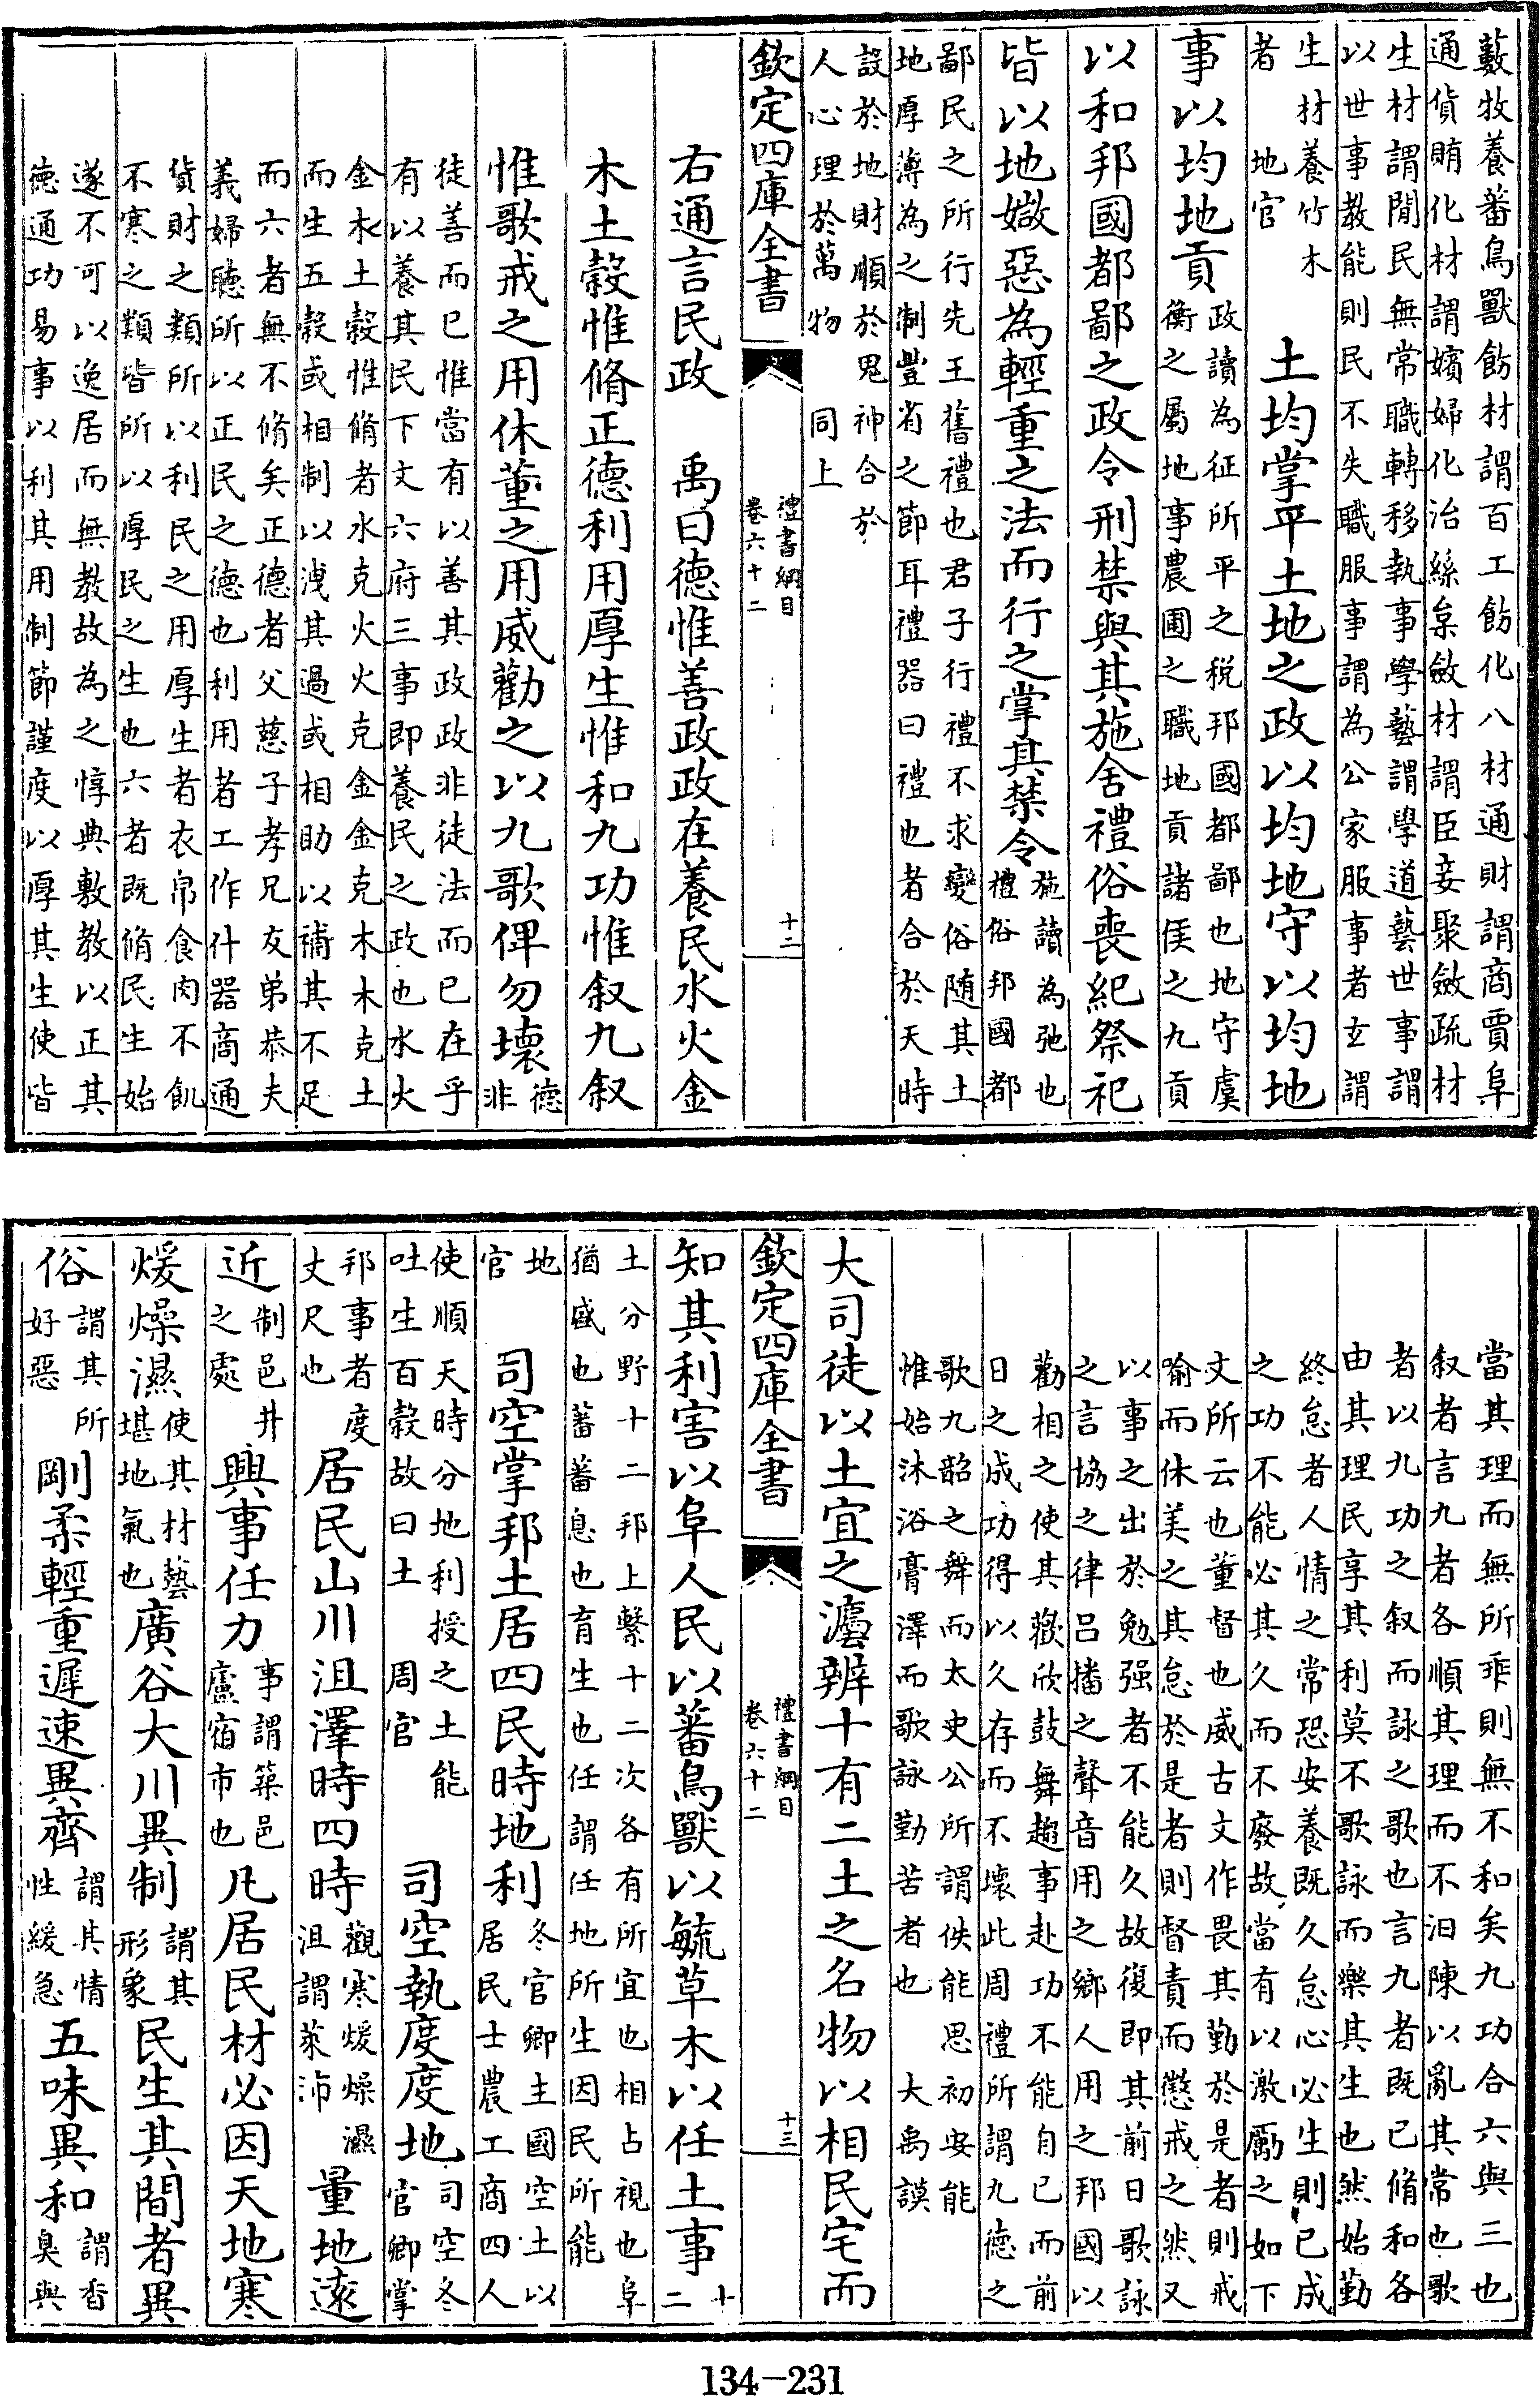 藪牧養蕃鳥獸飭材謂百工飭化八材通財謂商賈阜
通貨賄化材謂嬪婦化治絲枲斂材謂臣妾聚斂疏材
生材謂閒民無常職轉移執事學藝謂學道藝世事謂
以世事教能則民不失職服事謂為公家服事者玄謂
生材養竹木
者　地官
土均掌平土地之政以均地守以均地
事以均地貢
政讀為征所平之税邦國都鄙也地守虞
衡之屬地事農圃之職地貢諸侯之九貢
以和邦國都鄙之政令刑禁與其施舍禮俗喪紀祭祀
皆以地媺惡為輕重之法而行之掌其禁令
施讀為弛也
禮俗邦國都
鄙民之所行先王舊禮也君子行禮不求變俗随其土
地厚薄為之制豐省之節耳禮器曰禮也者合於天時
設於地財順於鬼神合於
人心理於萬物　同上
欽定四庫全書
禮書綱目
卷六十二
十二
右通言民政　禹曰德惟善政政在養民水火金
木土榖惟脩正德利用厚生惟和九功惟叙九叙
惟歌戒之用休董之用威勸之以九歌俾勿壞
德
非
徒善而已惟當有以善其政政非徒法而已在乎
有以養其民下文六府三事即養民之政也水火
金木土榖惟脩者水克火火克金金克木木克土
而生五榖或相制以洩其過或相助以補其不足
而六者無不脩矣正德者父慈子孝兄友弟恭夫
義婦聽所以正民之德也利用者工作什器商通
貨財之類所以利民之用厚生者衣帛食肉不飢
不寒之類皆所以厚民之生也六者既脩民生始
遂不可以逸居而無教故為之惇典敷教以正其
德通功易事以利其用制節謹度以厚其生使皆
當其理而無所乖則無不和矣九功合六與三也
叙者言九者各順其理而不汩陳以亂其常也歌
者以九功之叙而詠之歌也言九者既已脩和各
由其理民享其利莫不歌詠而樂其生也然始勤
終怠者人情之常恐安養既久怠心必生則已成
之功不能必其久而不廢故當有以激勵之如下
文所云也董督也威古文作畏其勤於是者則戒
喻而休美之其怠於是者則督責而懲戒之然又
以事之出於勉强者不能久故復即其前日歌詠
之言協之律呂播之聲音用之鄉人用之邦國以
勸相之使其歡欣鼓舞趨事赴功不能自已而前
日之成功得以久存而不壞此周禮所謂九德之
歌九韶之舞而太史公所謂佚能思初安能
惟始沐浴膏澤而歌詠勤苦者也　大禹謨
大司徒以土宜之灋辨十有二土之名物以相民宅而
欽定四庫全書
禮書綱目
卷六十二
十三
知其利害以阜人民以蕃鳥獸以毓草木以任土事
十
二
土分野十二邦上繫十二次各有所宜也相占視也阜
猶盛也蕃蕃息也育生也任謂任地所生因民所能
地
官
司空掌邦土居四民時地利
冬官卿主國空土以
居民士農工商四人
使順天時分地利授之土能
吐生百榖故曰土　周官
司空執度度地
司空冬
官卿掌
邦事者度
丈尺也
居民山川沮澤時四時
觀寒煖燥濕
沮謂萊沛
量地遠
近
制邑井
之處
興事任力
事謂築邑
廬宿市也
凡居民材必因天地寒
煖燥濕
使其材藝
堪地氣也
廣谷大川異制
謂其
形象
民生其間者異
俗
謂其所
好惡
剛柔輕重遲速異齊
謂其情
性緩急
五味異和
謂香
臭與
134-231